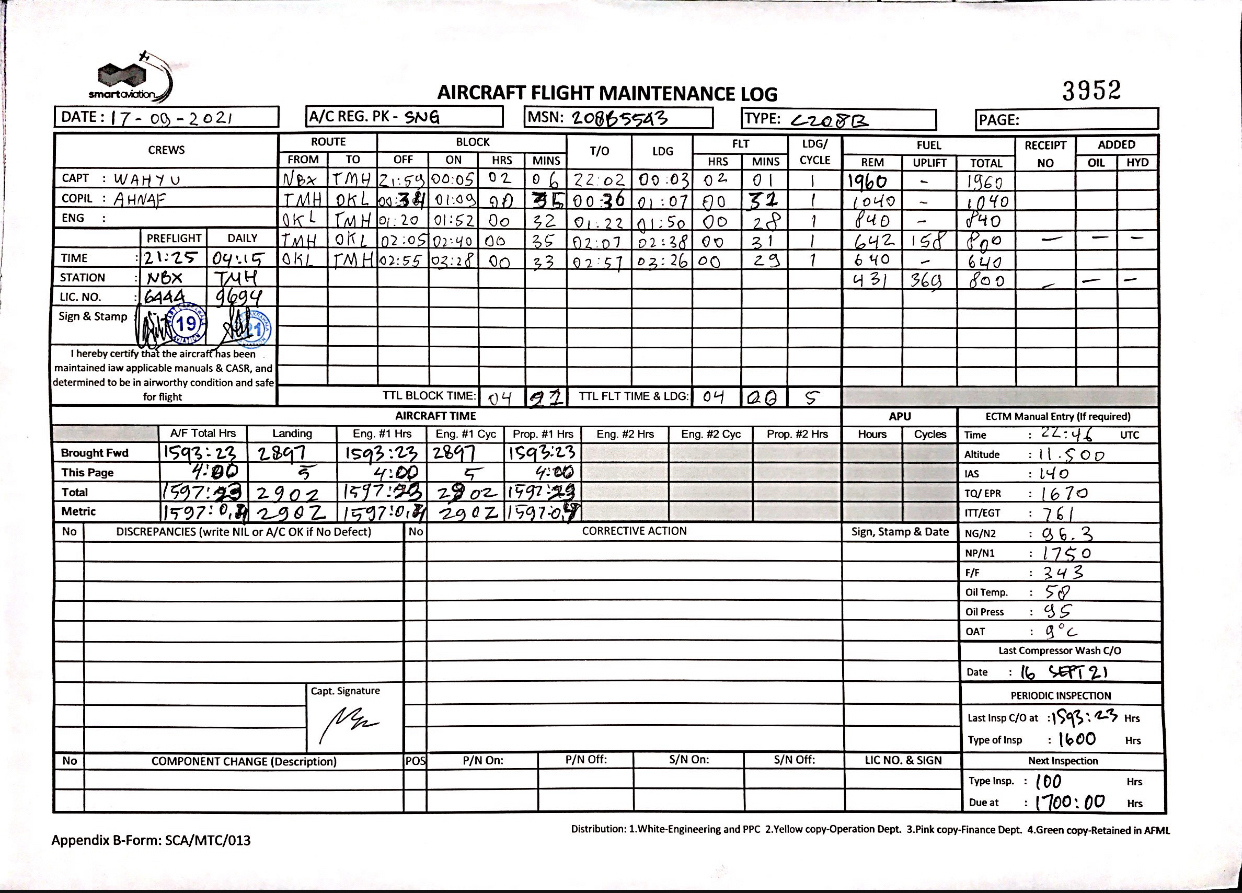 smartaviation
AIRCRAFT FLIGHT MAINTENANCE LOG
3952
DATE: 17-09-2021 A/C REG. PK- SNG MSN: 208B5543 TYPE: C208B PAGE:
CREWS ROUTE BLOCK T/O LDG FLT LDG/CYCLE FUEL RECEIPT NO ADDED
FROM TO OFF ON HRS MINS HRS MINS REM UPLIFT TOTAL OIL HYD
CAPT : WAHYU NBX TMH 21:59 00:05 02 06 22:02 00:03 02 01 1 1960 - 1960
COPIL : AHNAF TMH OKL 01:09 00 35 00:36 01:07 00 31 1 1040 - 1040
ENG : OKL TMH 01:20 01:52 00 32 01:22 01:50 00 28 1 840 - 840
PREFLIGHT DAILY TMH OKL 02:05 02:40 00 35 02:07 02:38 00 31 1 642 158 800 — — —
TIME : 21:25 04:15 OKL TMH 02:55 03:28 00 33 02:57 03:26 00 29 1 640 - 640
STATION : NBX TMH 431 369 800 — — —
LIC. NO. : 6444 9694
Sign & Stamp 19 21
I hereby certify that the aircraft has been
maintained iaw applicable manuals & CASR, and
determined to be in airworthy condition and safe
for flight
TTL BLOCK TIME: 04 TTL FLT TIME & LDG: 04 00 5
AIRCRAFT TIME APU ECTM Manual Entry (If required)
A/F Total Hrs Landing Eng. #1 Hrs Eng. #1 Cyc Prop. #1 Hrs Eng. #2 Hrs Eng. #2 Cyc Prop. #2 Hrs Hours Cycles Time : 22:46 UTC
Brought Fwd 1593:23 2897 1593:23 2897 1593:23 Altitude : 11.500
This Page 4:00 5 4:00 5 4:00 IAS : 140
Total 1597:23 2902 1597:23 2902 1597:23 TQ/ EPR : 1670
Metric 2902 2902 ITT/EGT : 761
No DISCREPANCIES (write NIL or A/C OK if No Defect) No CORRECTIVE ACTION Sign, Stamp & Date NG/N2 : 96.3
NP/N1 : 1750
F/F : 343
Oil Temp. : 58
Oil Press : 95
OAT : 9°C
Last Compressor Wash C/O
Date : 16 SEPT 21
Capt. Signature
PERIODIC INSPECTION
Last Insp C/O at : 1593:23 Hrs
Type of Insp : 1600 Hrs
No COMPONENT CHANGE (Description) POS P/N On: P/N Off: S/N On: S/N Off: LIC NO. & SIGN Next Inspection
Type Insp. : 100 Hrs
Due at : 1700:00 Hrs
Distribution: 1.White-Engineering and PPC 2.Yellow copy-Operation Dept. 3.Pink copy-Finance Dept. 4.Green copy-Retained in AFML
Appendix B-Form: SCA/MTC/013